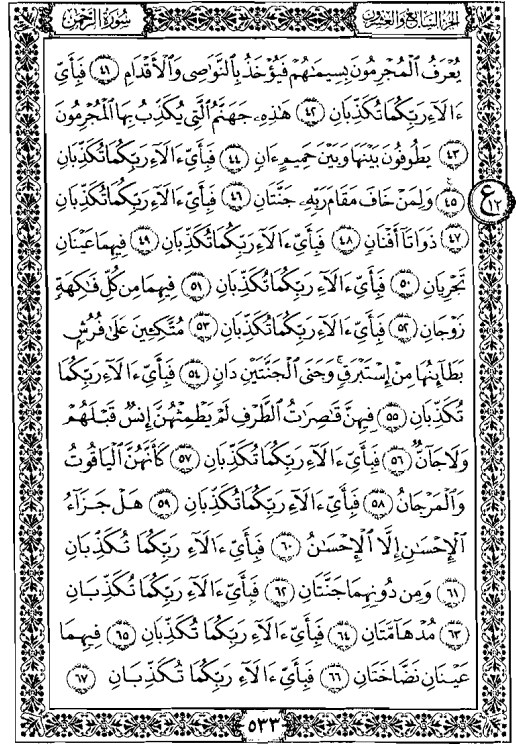 سُورَةُ الرَّحْمٰن الجزء السابع والعشرون
يُعْرَفُ الْمُجْرِمُونَ بِسِيمَٰهُمْ فَيُؤْخَذُ بِالنَّوَٰصِى وَالْأَقْدَامِ ٤١ فَبِأَىِّ
ءَالَآءِ رَبِّكُمَا تُكَذِّبَانِ ٤٢ هَٰذِهِۦ جَهَنَّمُ الَّتِى يُكَذِّبُ بِهَا الْمُجْرِمُونَ
٤٣ يَطُوفُونَ بَيْنَهَا وَبَيْنَ حَمِيمٍ ءَانٍ ٤٤ فَبِأَىِّ ءَالَآءِ رَبِّكُمَا تُكَذِّبَانِ
٤٥ وَلِمَنْ خَافَ مَقَامَ رَبِّهِۦ جَنَّتَانِ ٤٦ فَبِأَىِّ ءَالَآءِ رَبِّكُمَا تُكَذِّبَانِ
ع ١٢
٤٧ ذَوَاتَآ أَفْنَانٍ ٤٨ فَبِأَىِّ ءَالَآءِ رَبِّكُمَا تُكَذِّبَانِ ٤٩ فِيهِمَا عَيْنَانِ
تَجْرِيَانِ ٥٠ فَبِأَىِّ ءَالَآءِ رَبِّكُمَا تُكَذِّبَانِ ٥١ فِيهِمَا مِن كُلِّ فَٰكِهَةٍ
زَوْجَانِ ٥٢ فَبِأَىِّ ءَالَآءِ رَبِّكُمَا تُكَذِّبَانِ ٥٣ مُتَّكِـِٔينَ عَلَىٰ فُرُشٍ
بَطَآئِنُهَا مِنْ إِسْتَبْرَقٍ ۚ وَجَنَى الْجَنَّتَيْنِ دَانٍ ٥٤ فَبِأَىِّ ءَالَآءِ رَبِّكُمَا
تُكَذِّبَانِ ٥٥ فِيهِنَّ قَٰصِرَٰتُ الطَّرْفِ لَمْ يَطْمِثْهُنَّ إِنسٌ قَبْلَهُمْ
وَلَا جَآنٌّ ٥٦ فَبِأَىِّ ءَالَآءِ رَبِّكُمَا تُكَذِّبَانِ ٥٧ كَأَنَّهُنَّ الْيَاقُوتُ
وَالْمَرْجَانُ ٥٨ فَبِأَىِّ ءَالَآءِ رَبِّكُمَا تُكَذِّبَانِ ٥٩ هَلْ جَزَآءُ
الْإِحْسَٰنِ إِلَّا الْإِحْسَٰنُ ٦٠ فَبِأَىِّ ءَالَآءِ رَبِّكُمَا تُكَذِّبَانِ
٦١ وَمِن دُونِهِمَا جَنَّتَانِ ٦٢ فَبِأَىِّ ءَالَآءِ رَبِّكُمَا تُكَذِّبَانِ
٦٣ مُدْهَآمَّتَانِ ٦٤ فَبِأَىِّ ءَالَآءِ رَبِّكُمَا تُكَذِّبَانِ ٦٥ فِيهِمَا
عَيْنَانِ نَضَّاخَتَانِ ٦٦ فَبِأَىِّ ءَالَآءِ رَبِّكُمَا تُكَذِّبَانِ ٦٧
٥٣٣